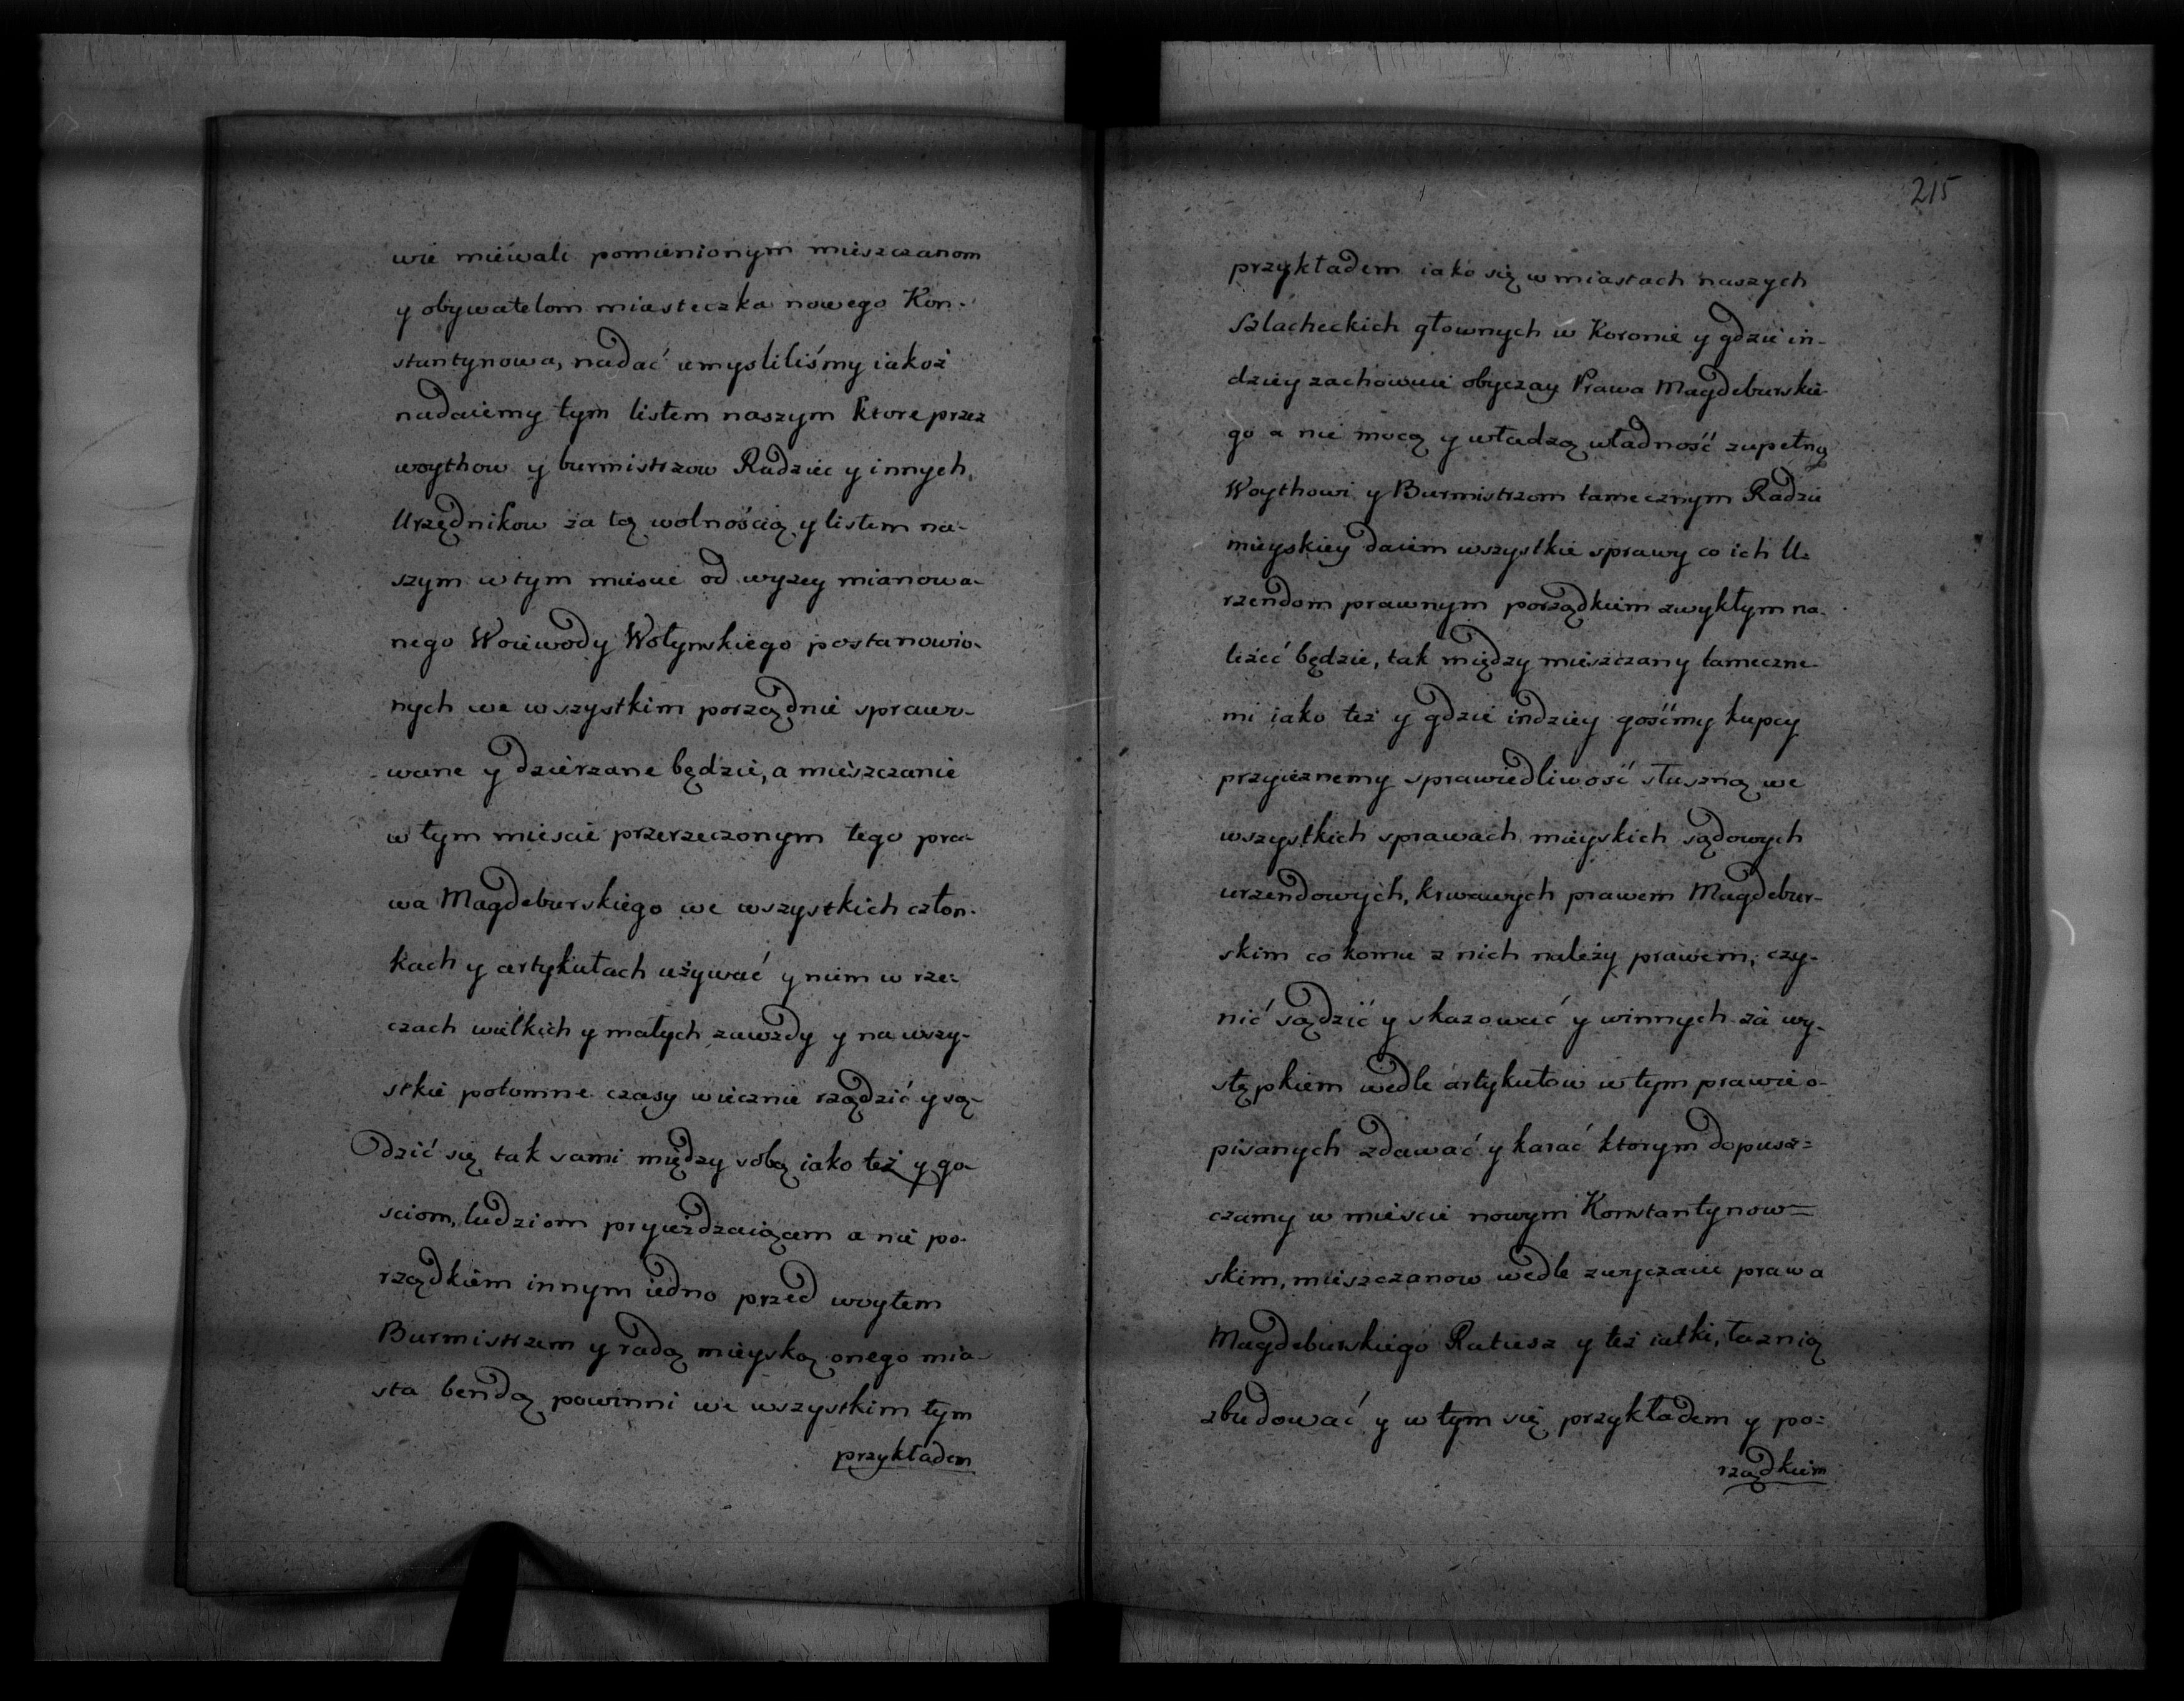 wie miewali pomienionym mieszczanom
y obywatelom miasteczka nowego Kon-
stantynowa, nadać umysliliśmy iakoż
nadaiemy tym listem naszym ktore przez
woythow y burmistrzow Radziec y innych
Urzędnikow za tą wolnością y listem na-
szym w tym miescie od wyzey mianowa-
nego Woiewody Wołynskiego postanowio-
nych we wszystkim porządnie sprawo-
wane y dzierzane będzie, a mieszczanie
w tym miescie przerzeczonym tego pra-
wa Magdeburskiego we wszystkich człon-
kach y artykułach używać y niem w rze-
czach wielkich y małych zawzdy y na wszy-
stkie potomne czasy wiecznie rządzić y są-
dzić się tak sami między sobą iako też y go-
sciom, ludziom pryieżdzaiącem a nie po-
rządkiem innym iedno przed woytem
Burmistrzem y radą mieyską onego mia-
sta bendą powinni we wszystkim tym
przykładem
215
przykładem iako się w miastach naszych
Szlacheckich głownych w Koronie y gdzie in-
dziey zachowuie obyczay Prawa Magdeburskie-
go a nie mocą y władzą władność zupełną
Woythowi y Burmistrzom tamecznym Radzie
mieyskiey daiem wszystkie sprawy co ich U-
rzendom prawnym porządkiem zwykłym na-
leżeć będzie, tak między mieszczany tameczne-
mi iako też y gdzie indziey gośćmy kupcy
przyieznemy sprawiedliwość słuszną we
wszystkich sprawach mieyskich sądowych
urzendowych, krwawych prawem Magdebur-
skim co komu z nich należy prawem, czy-
nić sądzić y skazować y winnych za wy-
stępkiem wedle artykułow w tym prawie o-
pisanych zdawać y karać ktorym dopusz-
czamy w mieście nowym Konstantynow-
skim, mieszczanow wedle zwyczaiu prawa
Magdeburskiego Ratusz y też iatki, łaznią
zbudować y w tym się przykładem y po-
rządkiem